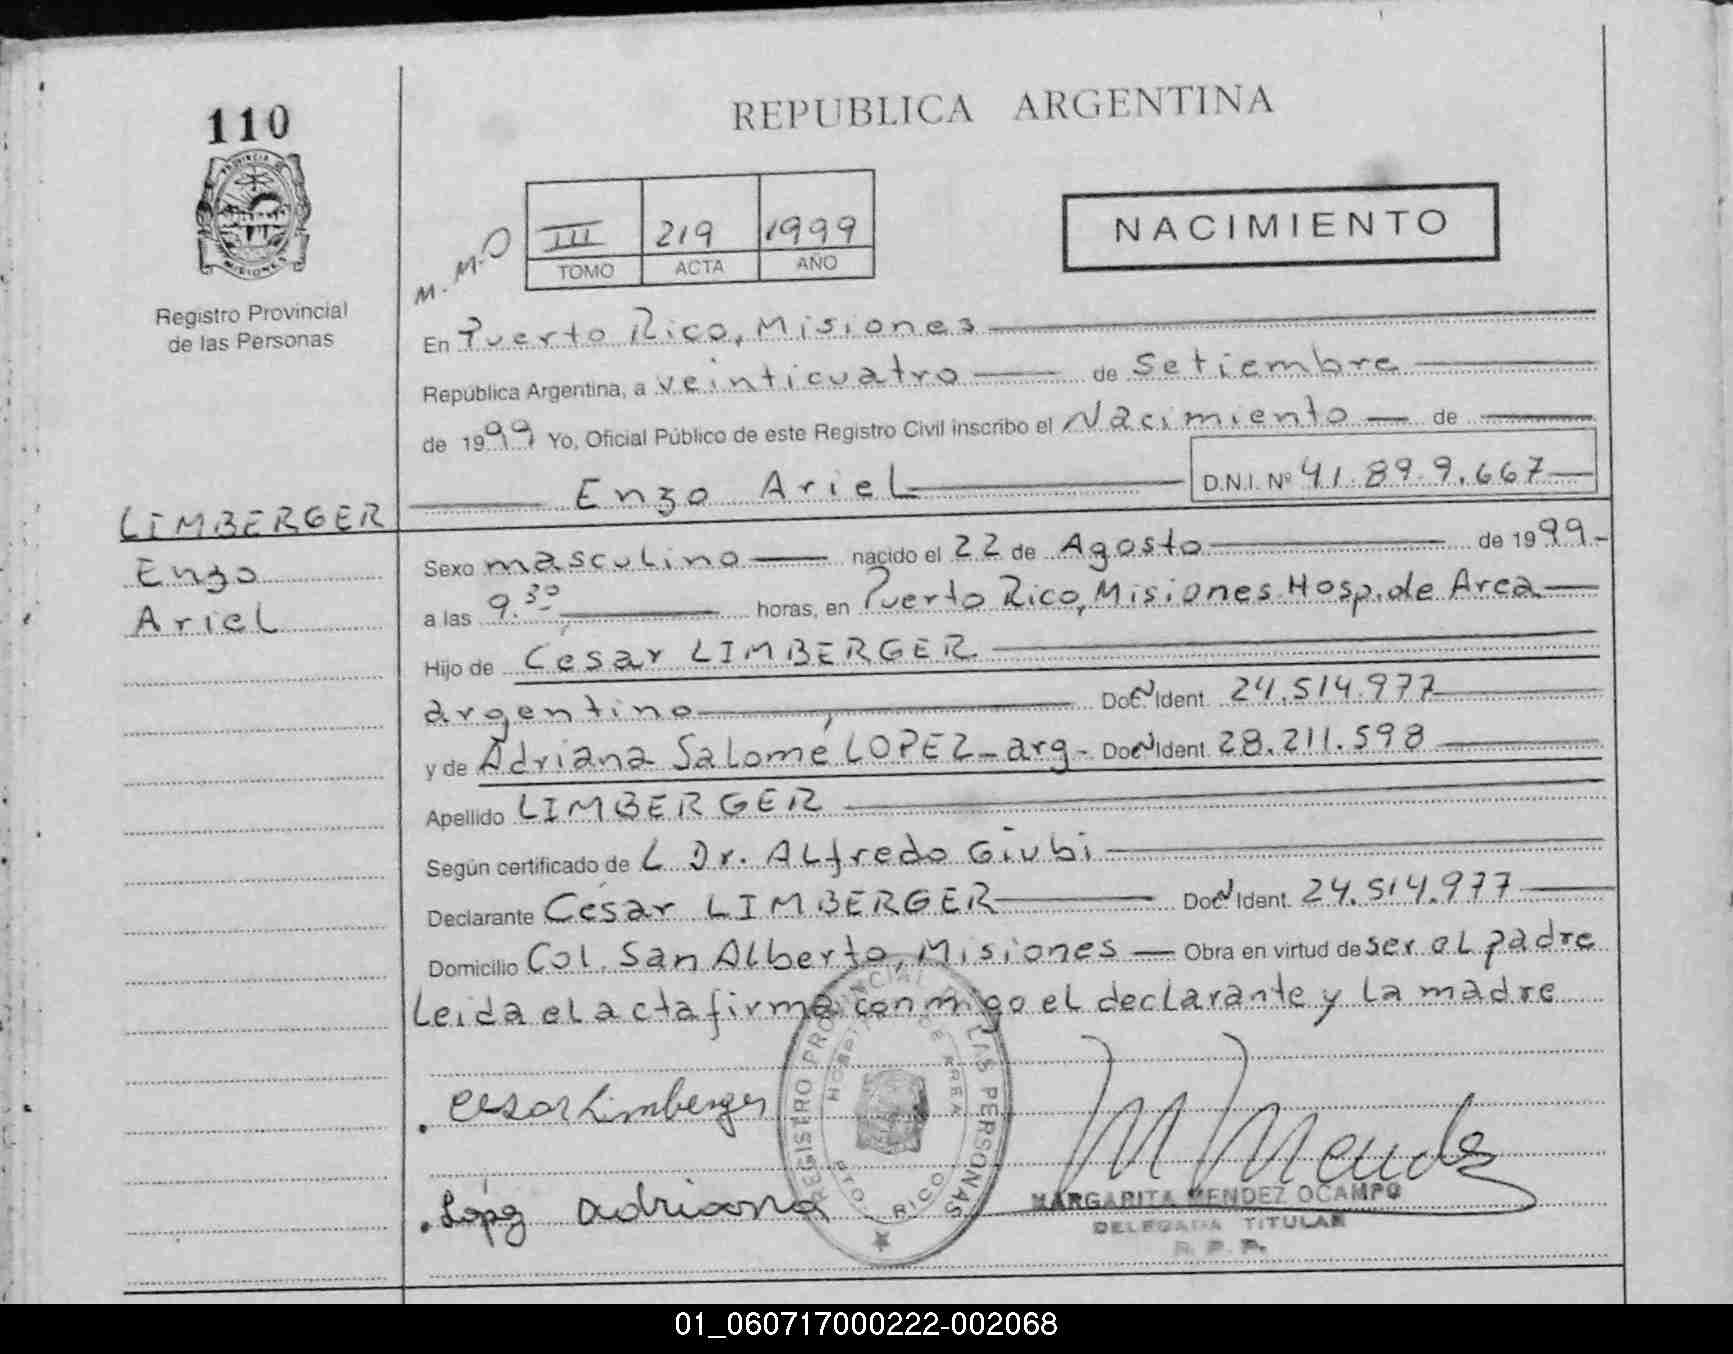 110
REPUBLICA ARGENTINA
PROVINCIA DE MISIONES
Registro Provincial
de las Personas
M.M.O
III 219 1999
TOMO ACTA AÑO
NACIMIENTO
En Puerto Rico, Misiones
República Argentina, a veinticuatro de Setiembre
de 1999 Yo, Oficial Público de este Registro Civil inscribo el Nacimiento de
Enzo Ariel D.N.I. Nº 41.899.667
LIMBERGER
Enzo
Ariel
Sexo masculino nacido el 22 de Agosto de 1999-
a las 9.30 horas, en Puerto Rico, Misiones Hosp. de Area
Hijo de César LIMBERGER
argentino Doc. N Ident. 24.514.977
y de Adriana Salomé LOPEZ-arg- Doc. N Ident. 28.211.598
Apellido LIMBERGER
Según certificado de L Dr. Alfredo Giubi
Declarante César LIMBERGER Doc. N Ident. 24.514.977
Domicilio Col. San Alberto, Misiones — Obra en virtud de ser el padre
Leida el acta firma conmigo el declarante y la madre
REGISTRO PROVINCIAL DE LAS PERSONAS
HOSPITAL DE AREA
PTO RICO
Cesar Limberger
López Adriana
M Mendez
MARGARITA MENDEZ OCAMPO
DELEGADA TITULAR
R. P. P.
01_060717000222-002068